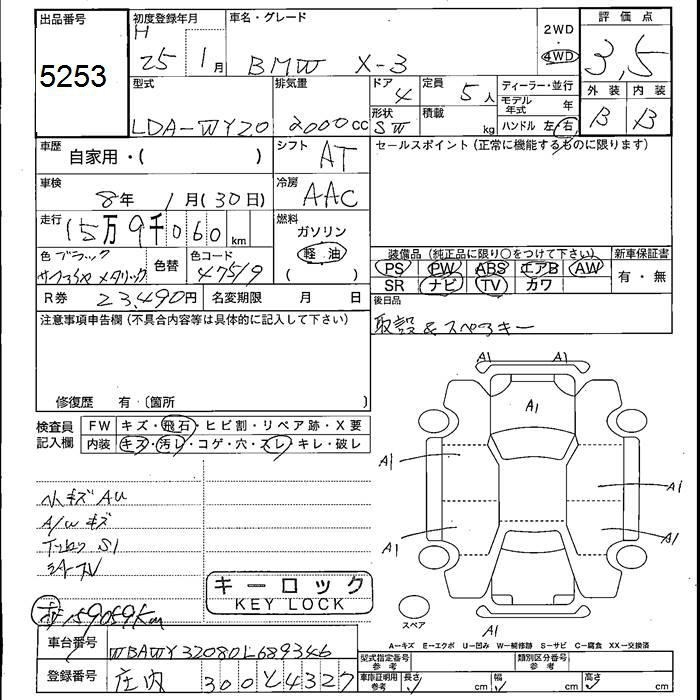 出品番号
5253
初度登録年月
H 25 1月
車名・グレード
BMW X-3
2WD
4WD
評価点
3,5
外装 内装
B B
型式
LDA-WY20
排気量
2000cc
ドア
4
形状
SW
定員
5人
積載
kg
ディーラー・並行
モデル年式 年
ハンドル 左・右
車歴
自家用・( )
シフト
AT
セールスポイント(正常に機能するものに限ります)
車検
8年 1月(30日)
冷房
AAC
走行
15万9千060km
燃料
ガソリン
軽油
( )
色 ブラック
サファイヤ メタリック
色替
色コード
475/9
装備品(純正品に限り○をつけて下さい)
PS PW ABS エアB AW
SR ナビ TV カワ
新車保証書
有・無
R券 23,490円
名変期限 月 日
後日品
取説&スペアキー
注意事項申告欄(不具合内容等は具体的に記入して下さい)
修復歴 有・〔箇所 〕
検査員記入欄
FW キズ・飛石・ヒビ割・リペア跡・X要
内装 キズ・汚レ・コゲ・穴・スレ・キレ・破レ
小キズAU
A/W キズ
S1
159059km
キーロック
KEY LOCK
A1
A1
A1
A1
A1
A1
A1
A1
スペア
A=キズ E=エクボ U=凹み W=補修跡 S=サビ C=腐食 XX=交換済
車台番号
WBAWY32080L689346
登録番号
庄内 300 と 4327
型式指定番号
参考
類別区分番号
参考
車庫証明用
参考
長さ cm
幅 cm
高さ cm